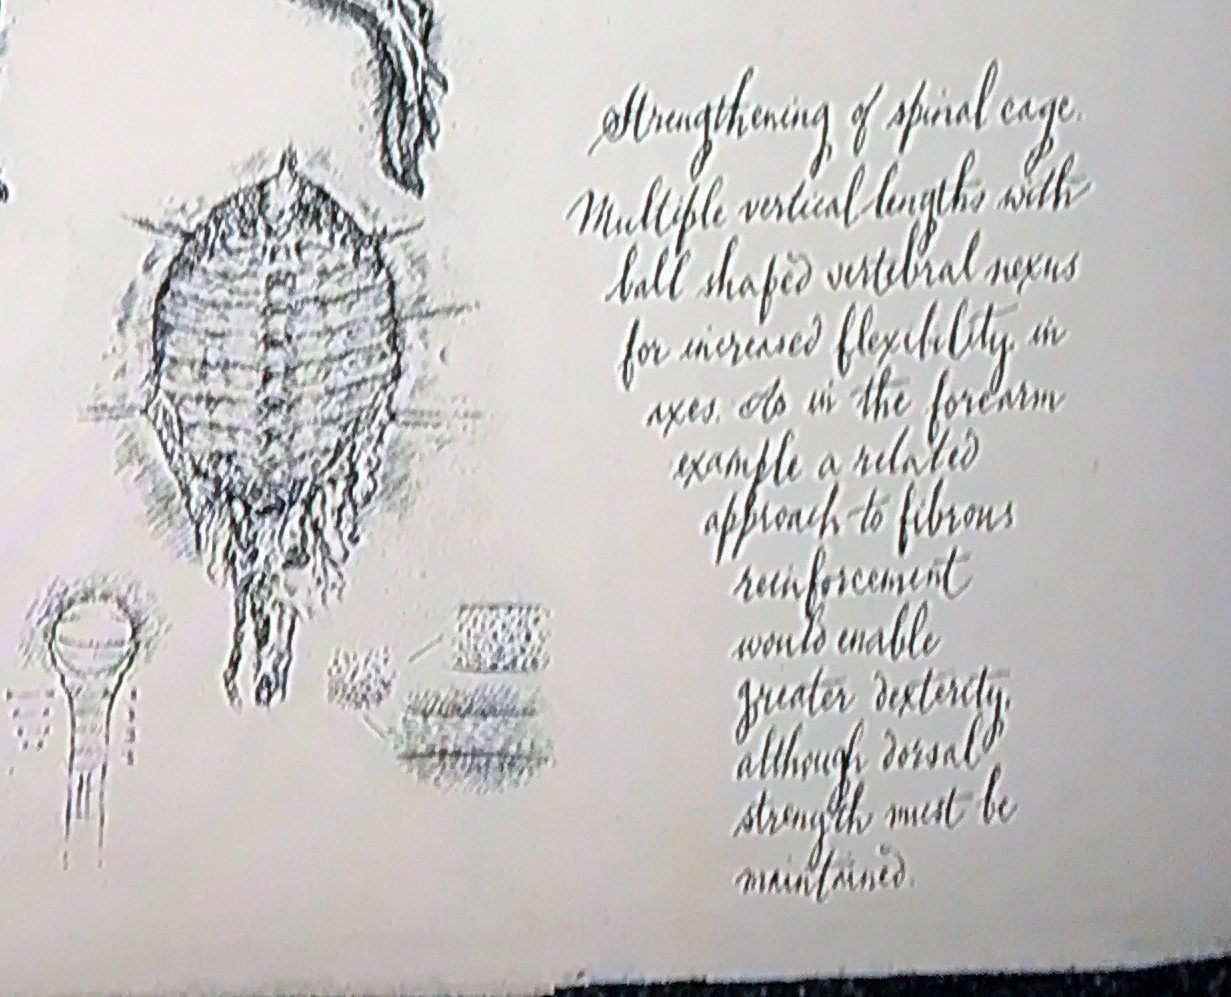 Strengthening of spinal cage.
Multiple vertical lengths with
ball shaped vertebral nexus
for increased flexibility in
axes. As in the forearm
example a related
approach to fibrous
reinforcement
would enable
greater dexterity,
although dorsal
strength must be
maintained.